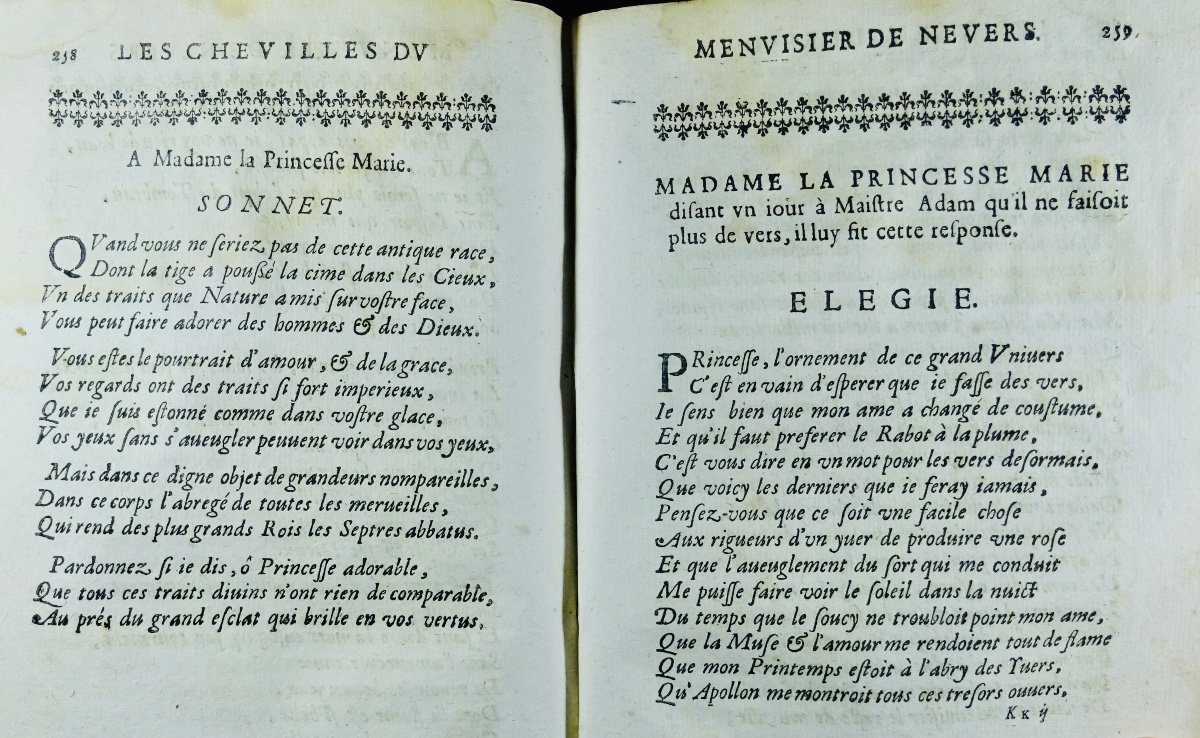 258 LES CHEVILLES DV
A Madame la Princeſſe Marie.
SONNET.
QVand vous ne ſeriez pas de cette antique race,
Dont la tige a poußé la cime dans les Cieux,
Vn des traits que Nature a mis ſur voſtre face,
Vous peut faire adorer des hommes & des Dieux.
Vous eſtes le pourtrait d'amour, & de la grace,
Vos regards ont des traits ſi fort imperieux,
Que ie ſuis eſtonné comme dans voſtre glace,
Vos yeux ſans s'aueugler peuuent voir dans vos yeux,
Mais dans ce digne objet de grandeurs nompareilles,
Dans ce corps l'abregé de toutes les merueilles,
Qui rend des plus grands Rois les Septres abbatus.
Pardonnez ſi ie dis, ô Princeſſe adorable,
Que tous ces traits diuins n'ont rien de comparable,
Au prés du grand eſclat qui brille en vos vertus.
MENVISIER DE NEVERS. 259
MADAME LA PRINCESSE MARIE
diſant vn iour à Maiſtre Adam qu'il ne faiſoit
plus de vers, il luy fit cette reſponſe.
ELEGIE.
PRinceſſe, l'ornement de ce grand Vniuers
C'eſt en vain d'eſperer que ie faſſe des vers,
Ie ſens bien que mon ame a changé de couſtume,
Et qu'il faut preferer le Rabot à la plume,
C'eſt vous dire en vn mot pour les vers deſormais,
Que voicy les derniers que ie feray iamais,
Penſez-vous que ce ſoit vne facile choſe
Aux rigueurs d'vn yuer de produire vne roſe
Et que l'aueuglement du ſort qui me conduit
Me puiſſe faire voir le ſoleil dans la nuict
Du temps que le ſoucy ne troubloit point mon ame,
Que la Muſe & l'amour me rendoient tout de flame
Que mon Printemps eſtoit à l'abry des Yuers,
Qu'Apollon me montroit tous ces treſors ouuers,
Kk ij